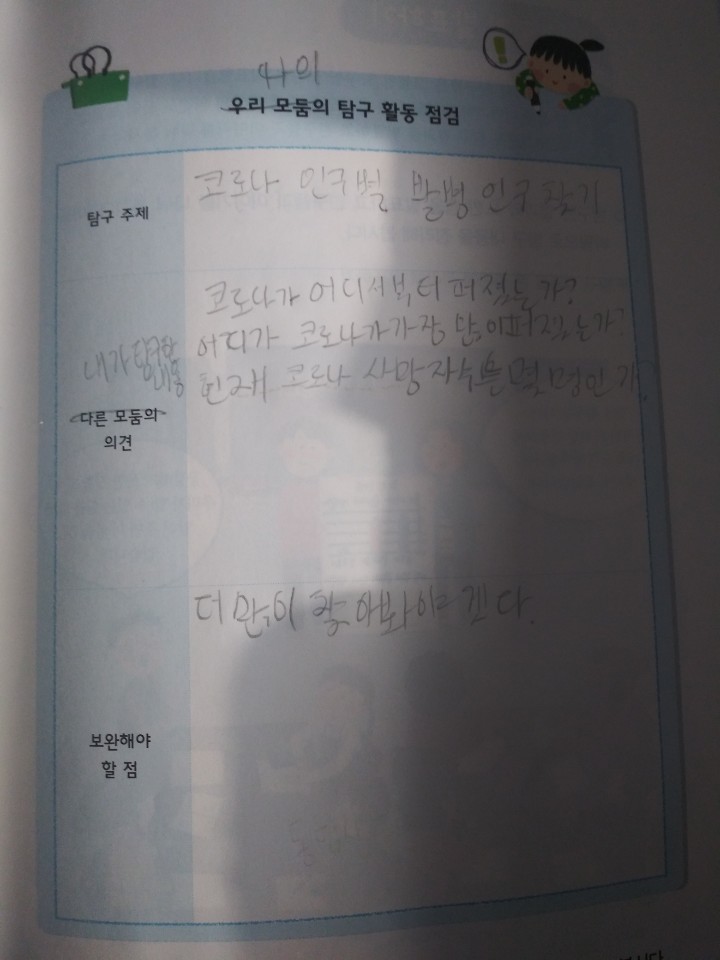 나의
우리 모둠의 탐구 활동 점검
탐구 주제
코로나 인구별 발병 인구 찾기
코로나가 어디서부터 퍼졌는가?
어디가 코로나가 가장 많이 퍼졌는가?
현재 코로나 사망자수는 몇 명인가?
내가 탐구한
내용
다른 모둠의
의견
더 많이 찾아봐야겠다.
보완해야
할 점